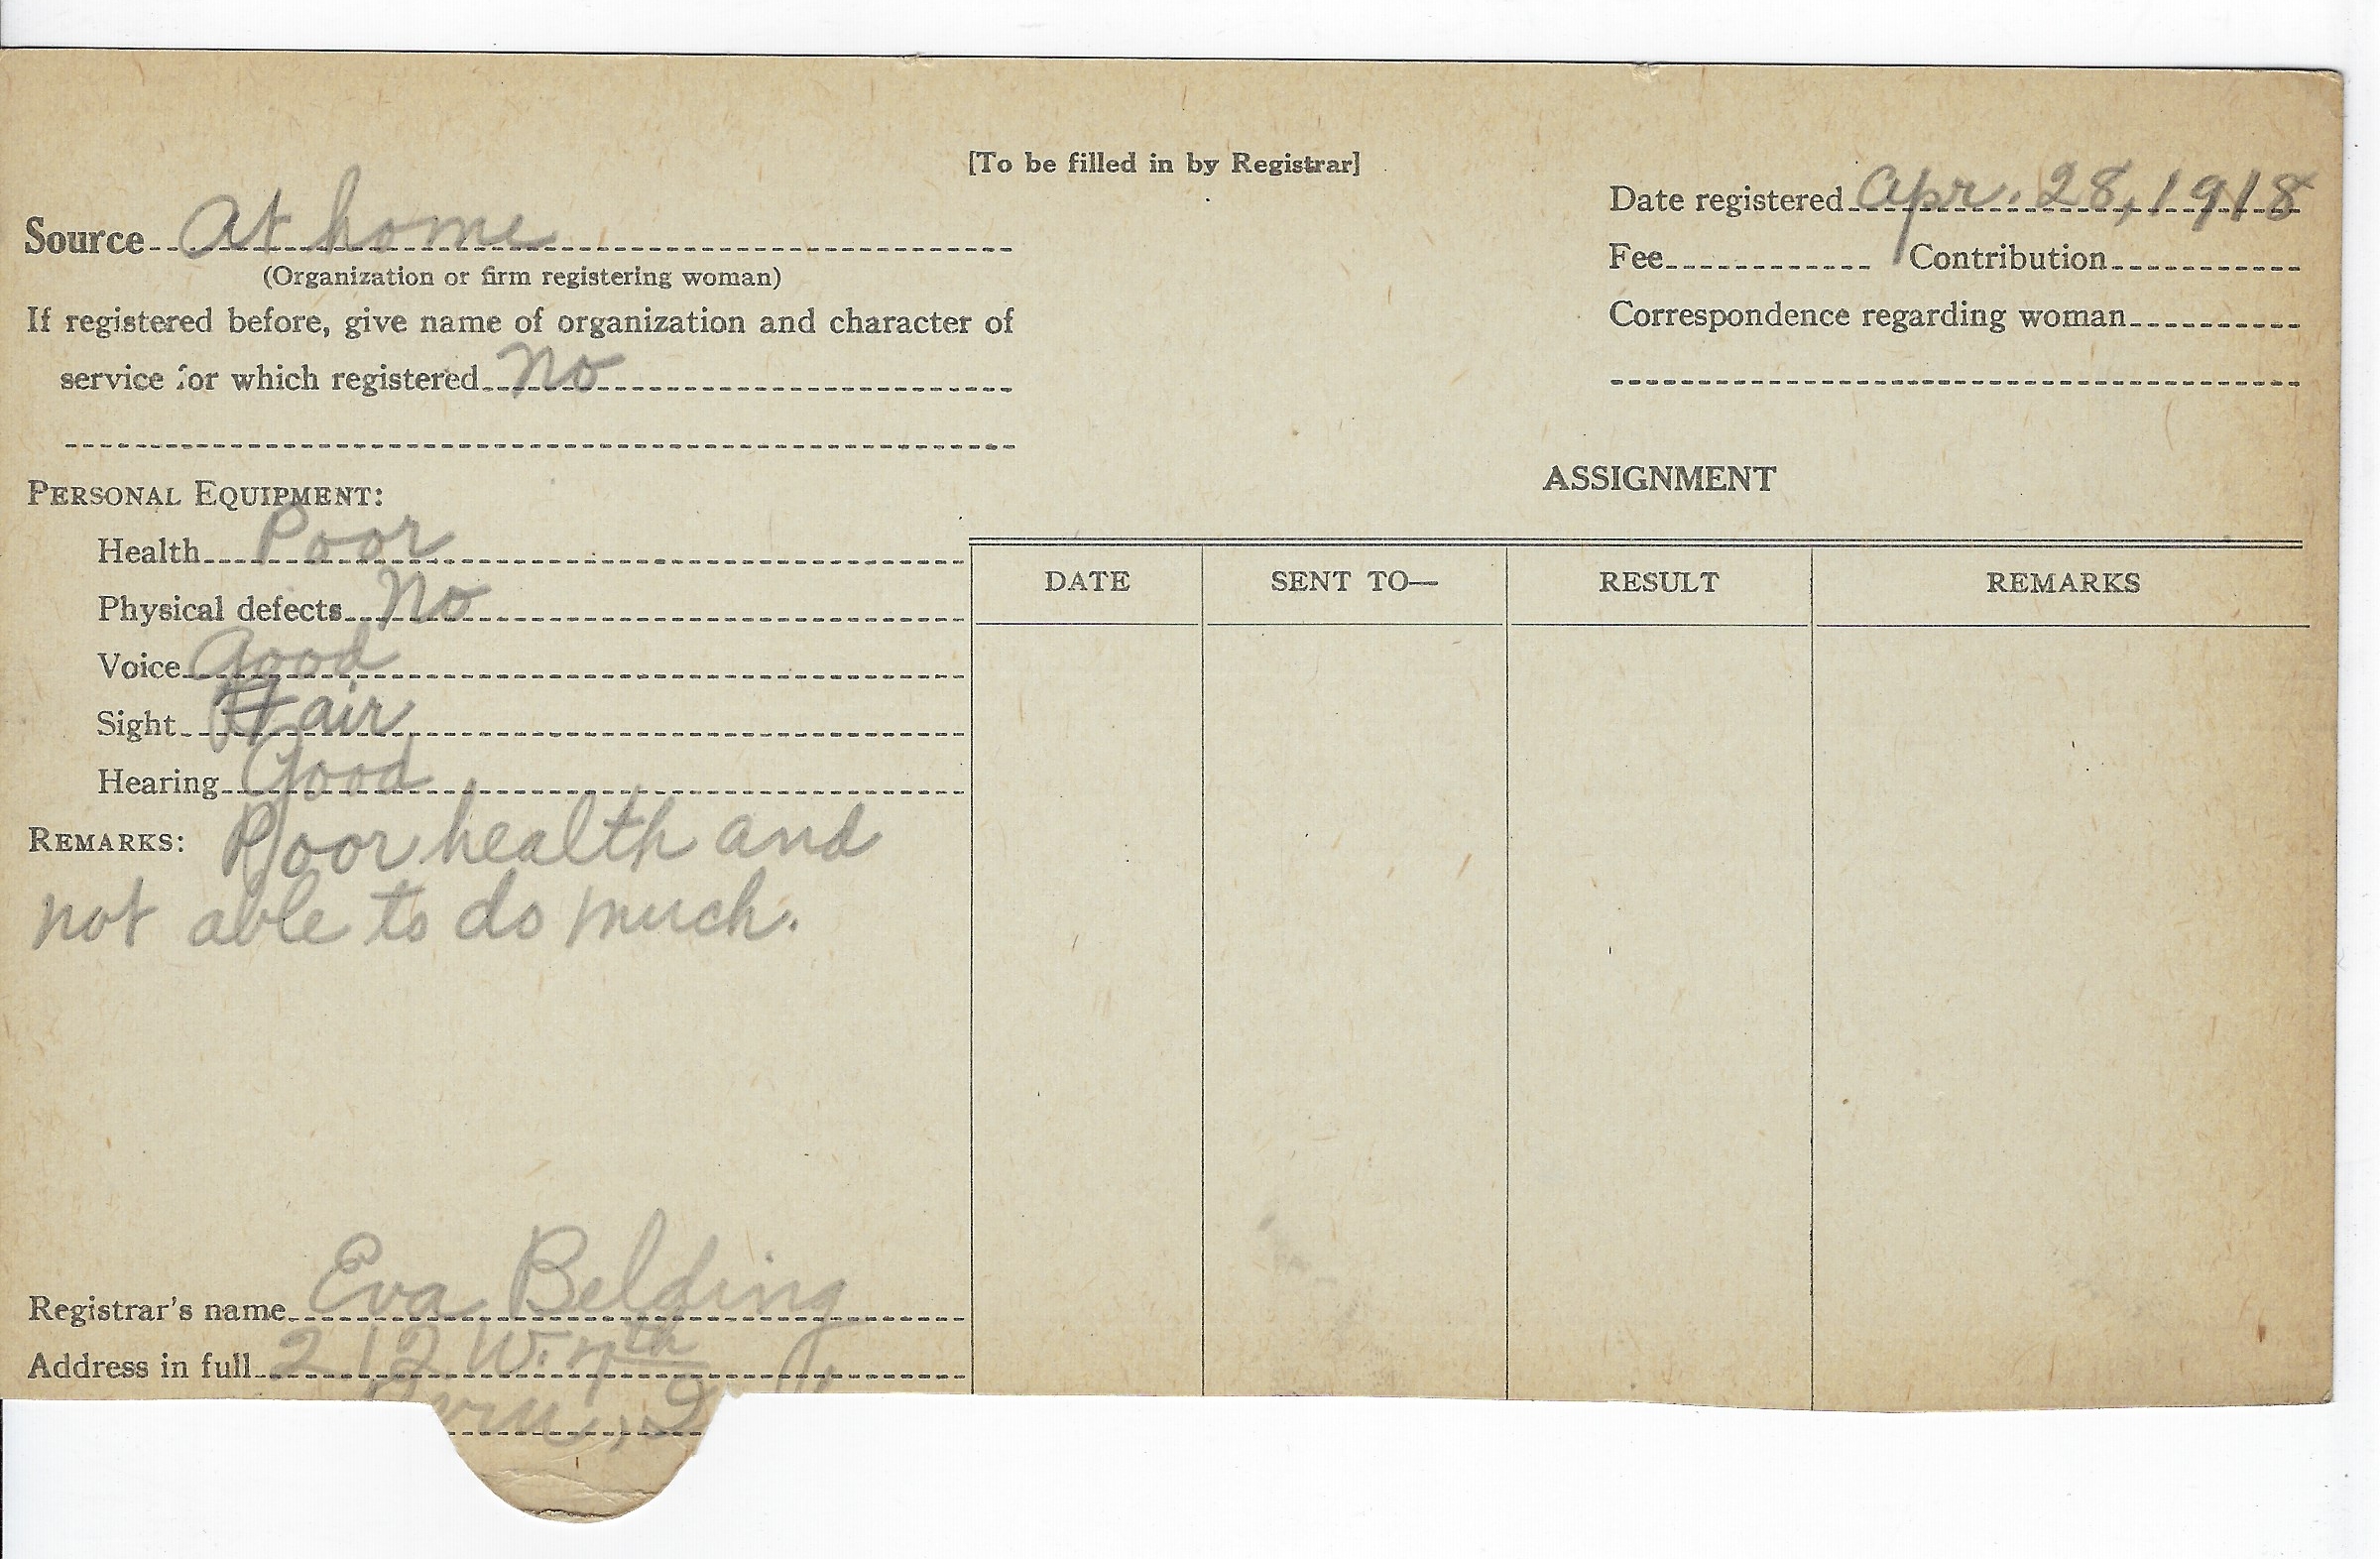 [To be filled in by Registrar]
Date registered Apr. 28, 1918
Source At home
(Organization or firm registering woman)
Fee Contribution
If registered before, give name of organization and character of
Correspondence regarding woman
service for which registered No
PERSONAL EQUIPMENT:
ASSIGNMENT
Health Poor
DATE SENT TO— RESULT REMARKS
Physical defects No
Voice Good
Sight Fair
Hearing Good
REMARKS: Poor health and
not able to do much.
Registrar's name Eva Belding
Address in full 212 W. 7th